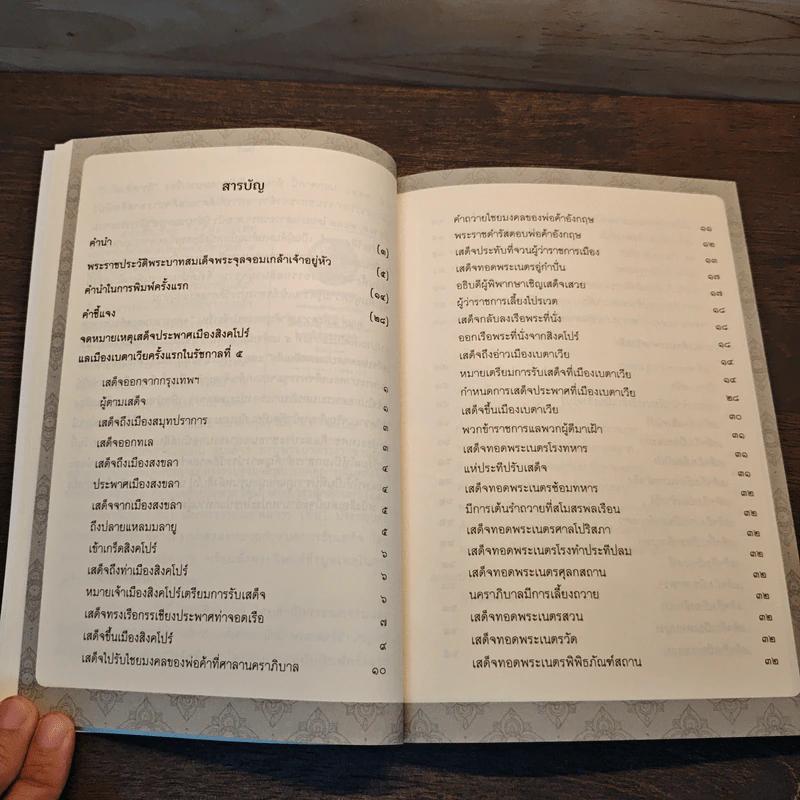 สารบัญ
คำนำ (๑)
พระราชประวัติพระบาทสมเด็จพระจุลจอมเกล้าเจ้าอยู่หัว (๕)
คำนำในการพิมพ์ครั้งแรก (๑๔)
คำชี้แจง (๒๘)
จดหมายเหตุเสด็จประพาศเมืองสิงคโปร์
แลเมืองเบตาเวียครั้งแรกในรัชกาลที่ ๕
เสด็จออกจากกรุงเทพฯ ๑
ผู้ตามเสด็จ ๑
เสด็จถึงเมืองสมุทปราการ ๓
เสด็จออกทเล ๓
เสด็จถึงเมืองสงขลา ๔
ประพาศเมืองสงขลา ๔
เสด็จจากเมืองสงขลา ๕
ถึงปลายแหลมมลายู ๕
เข้าเกร็ดสิงคโปร์ ๖
เสด็จถึงท่าเมืองสิงคโปร์ ๖
หมายเจ้าเมืองสิงคโปร์เตรียมการรับเสด็จ ๖
เสด็จทรงเรือกรรเชียงประพาศท่าจอดเรือ ๗
เสด็จขึ้นเมืองสิงคโปร์ ๙
เสด็จไปรับไชยมงคลของพ่อค้าที่ศาลานคราภิบาล ๑๐
คำถวายไชยมงคลของพ่อค้าอังกฤษ ๑๑
พระราชดำรัสตอบพ่อค้าอังกฤษ ๑๒
เสด็จประทับที่จวนผู้ว่าราชการเมือง ๑๓
เสด็จทอดพระเนตรอู่กำปั่น ๑๗
อธิบดีผู้พิพากษาเชิญเสด็จเสวย ๑๗
ผู้ว่าราชการเลี้ยงไปรเวต ๑๘
เสด็จกลับลงเรือพระที่นั่ง ๑๘
ออกเรือพระที่นั่งจากสิงคโปร์ ๑๘
เสด็จถึงอ่าวเมืองเบตาเวีย ๑๙
หมายเตรียมการรับเสด็จที่เมืองเบตาเวีย ๑๙
กำหนดการเสด็จประพาศที่เมืองเบตาเวีย ๒๘
เสด็จขึ้นเมืองเบตาเวีย ๓๐
พวกข้าราชการแลพวกผู้ดีมาเฝ้า ๓๑
เสด็จทอดพระเนตรโรงทหาร ๓๑
แห่ประทีปรับเสด็จ ๓๑
เสด็จทอดพระเนตรซ้อมทหาร ๓๒
มีการเต้นรำถวายที่สโมสรพลเรือน ๓๒
เสด็จทอดพระเนตรศาลโปริสภา ๓๒
เสด็จทอดพระเนตรโรงทำประทีปลม ๓๒
เสด็จทอดพระเนตรศุลกสถาน ๓๒
นคราภิบาลมีการเลี้ยงถวาย ๓๒
เสด็จทอดพระเนตรสวน ๓๒
เสด็จทอดพระเนตรวัด ๓๒
เสด็จทอดพระเนตรพิพิธภัณฑ์สถาน ๓๒